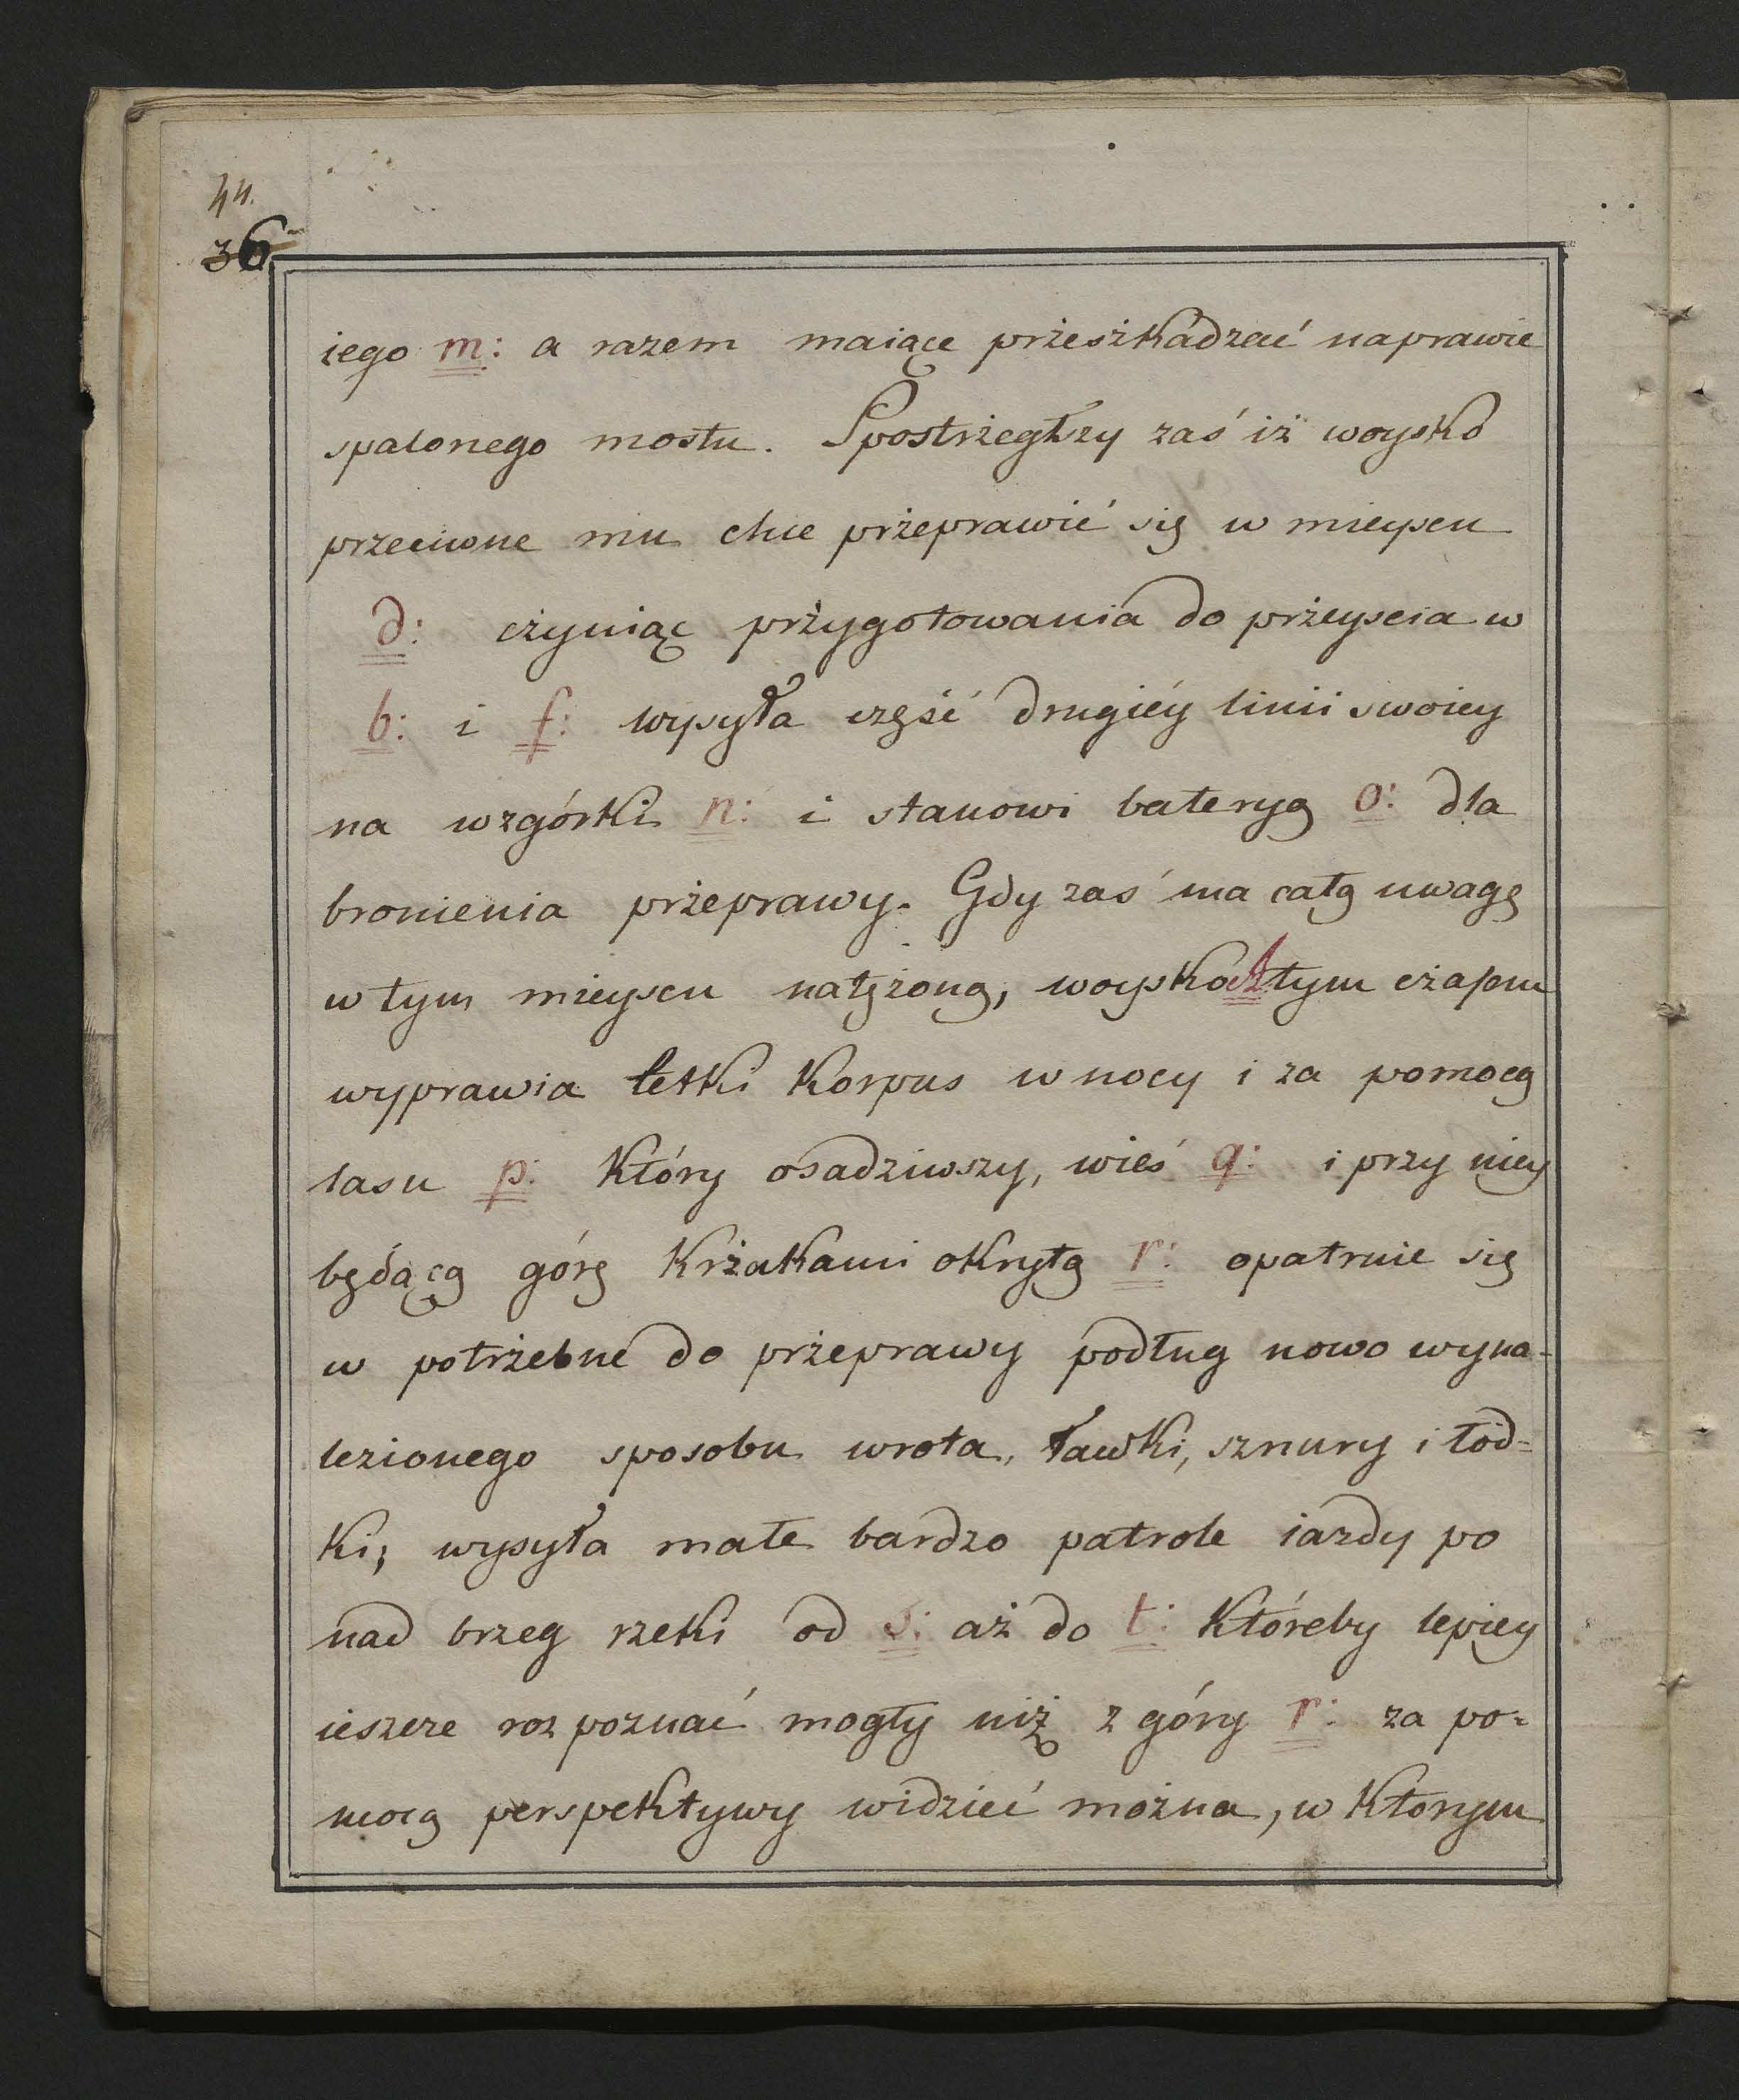 44.
36
iego m: a razem maiące przeszkadzać naprawie
spalonego mostu. Spostrzegłszy zaś iż woysko
przeciwne mu chce przeprawić się w mieyscu
d: czyniąc przygotowania do przeyscia w
b: i f: wysyła część drugiéy linii swoiey
na wzgórki n: i stanowi bateryą o: dla
bronienia przeprawy. Gdy zaś ma całą uwagę
w tym mieyscu natężoną, woysko tym czasem
wyprawia letki korpus w nocy i za pomocą
lasu p: który osadziwszy, wieś q: i przy niey
będącą górę krzakami okrytą r: opatruie się
w potrzebne do przeprawy podług nowo wyna-
lezionego sposobu wrota, ławki, sznury i łód=
ki; wysyła małe bardzo patrole iazdy po
nad brzeg rzeki od s: aż do t: któreby lepiey
ieszcze rozpoznać mogły niż z góry r: za po=
mocą perspektywy widzieć można, w którym